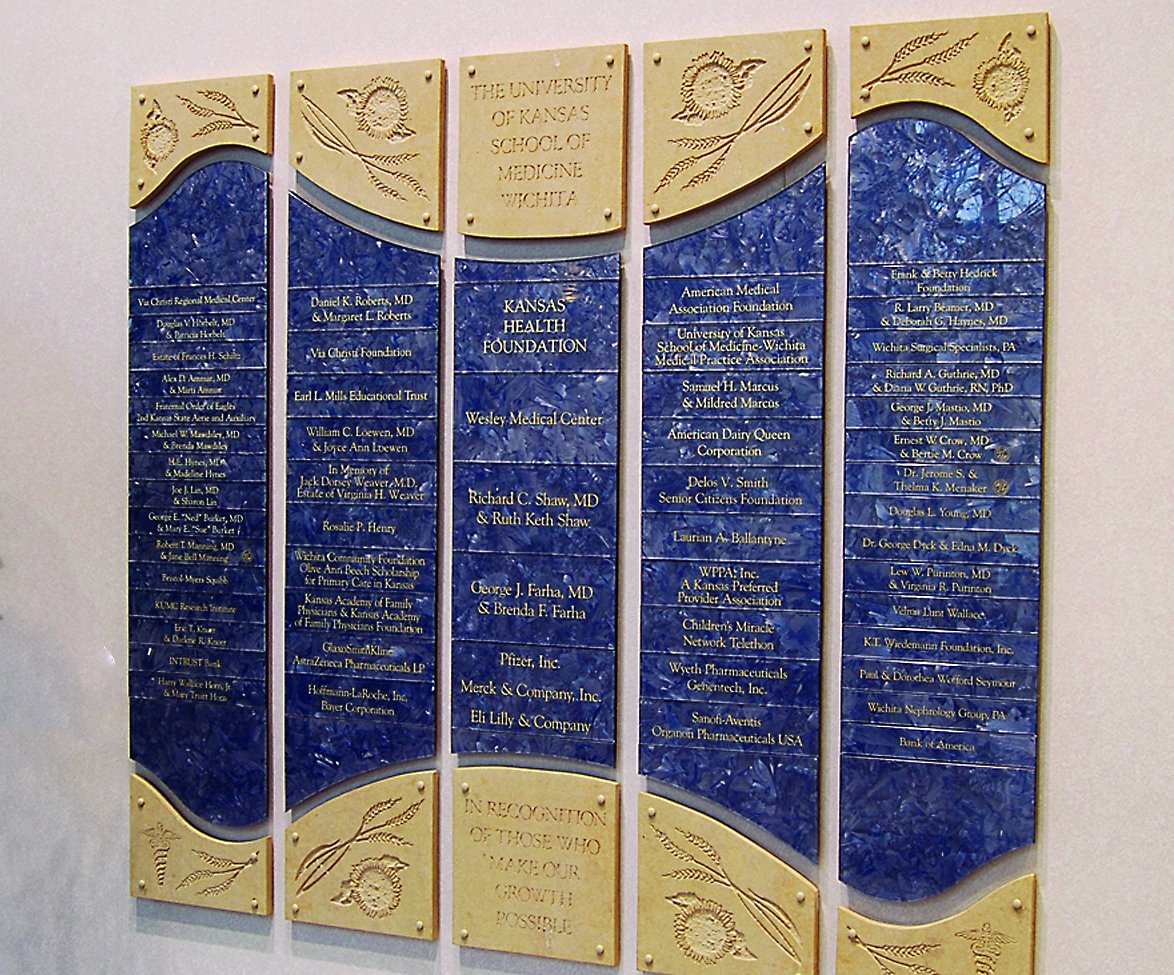 THE UNIVERSITY
OF KANSAS
SCHOOL OF
MEDICINE
WICHITA
Via Christi Regional Medical Center
Douglas V. Horbelt, MD
& Patricia Horbelt
Estate of Frances H. Schiltz
Alex D. Ammar, MD
& Marti Ammar
Fraternal Order of Eagles
2nd Kansas State Aerie and Auxiliary
Michael W. Mawdsley, MD
& Brenda Mawdsley
H.E. Hynes, MD
& Madeline Hynes
Joe J. Lin, MD
& Sharon Lin
George E. "Ned" Burket, MD
& Mary E. "Sue" Burket
Robert T. Manning, MD
& Jane Bell Manning
Bristol-Myers Squibb
KUMC Research Institute
Eric T. Knorr
& Darlene R. Knorr
INTRUST Bank
Harry Wallace Horn, Jr.
& Mary Truitt Horn
Daniel K. Roberts, MD
& Margaret L. Roberts
Via Christi Foundation
Earl L. Mills Educational Trust
William C. Loewen, MD
& Joyce Ann Loewen
In Memory of
Jack Dorsey Weaver, M.D.
Estate of Virginia H. Weaver
Rosalie P. Henry
Wichita Community Foundation
Olive Ann Beech Scholarship
for Primary Care in Kansas
Kansas Academy of Family
Physicians & Kansas Academy
of Family Physicians Foundation
GlaxoSmithKline
AstraZeneca Pharmaceuticals LP
Hoffmann-LaRoche, Inc.
Bayer Corporation
KANSAS
HEALTH
FOUNDATION
Wesley Medical Center
Richard C. Shaw, MD
& Ruth Keth Shaw
George J. Farha, MD
& Brenda F. Farha
Pfizer, Inc.
Merck & Company, Inc.
Eli Lilly & Company
American Medical
Association Foundation
University of Kansas
School of Medicine-Wichita
Medical Practice Association
Samuel H. Marcus
& Mildred Marcus
American Dairy Queen
Corporation
Delos V. Smith
Senior Citizens Foundation
Laurian A. Ballantyne
WPPA, Inc.
A Kansas Preferred
Provider Association
Children's Miracle
Network Telethon
Wyeth Pharmaceuticals
Genentech, Inc.
Sanofi-Aventis
Organon Pharmaceuticals USA
Frank & Betty Hedrick
Foundation
R. Larry Beamer, MD
& Deborah G. Haynes, MD
Wichita Surgical Specialists, PA
Richard A. Guthrie, MD
& Diana W. Guthrie, RN, PhD
George J. Mastio, MD
& Betty J. Mastio
Ernest W. Crow, MD
& Bertie M. Crow
Dr. Jerome S. &
Thelma K. Menaker
Douglas L. Young, MD
Dr. George Dyck & Edna M. Dyck
Lew W. Purinton, MD
& Virginia R. Purinton
Velma Lunt Wallace
K.T. Wiedemann Foundation, Inc.
Paul & Dorothea Wofford Seymour
Wichita Nephrology Group, PA
Bank of America
IN RECOGNITION
OF THOSE WHO
MAKE OUR
GROWTH
POSSIBLE